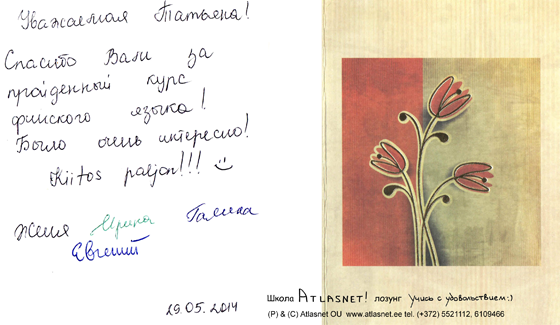 Уважаемая Татьяна!
Спасибо Вам за
пройденный курс
финского языка!
Было очень интересно!
Kiitos paljon!!! :)
Женя Ирина Галина
Евгений
29.05.2014
Школа ATLASNET! лозунг Учись с удовольствием:)
(P) & (C) Atlasnet OU www.atlasnet.ee tel. (+372) 5521112, 6109466